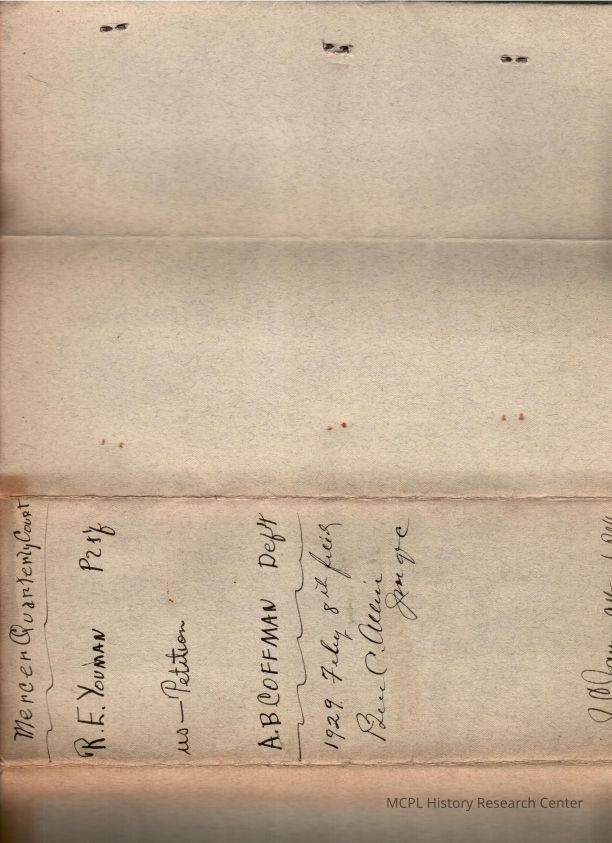 Mercer Quarterly Court
R.E. Youman Pltf
vs - Petition
A.B COFFMAN Deft
1929 Feby 8th filed
Ben C. Allin
Judge
MCPL History Research Center